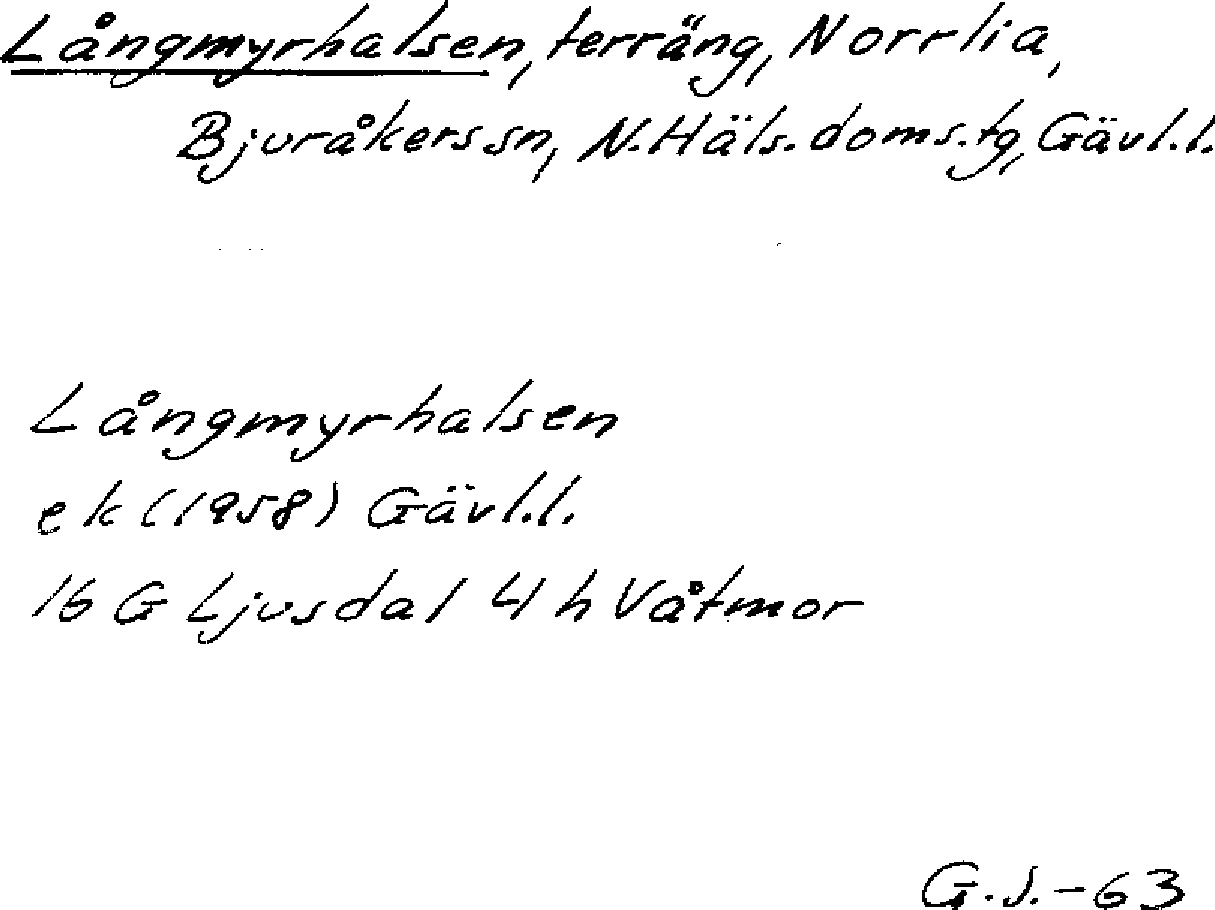 Långmyrhalsen, terräng, Norrlia,
Bjuråkers sn, N. Häls. doms. tg, Gävl. l.
Långmyrhalsen
ek (1958) Gävl. l.
16 G Ljusdal 4 h Våtmor
G. J. - 63